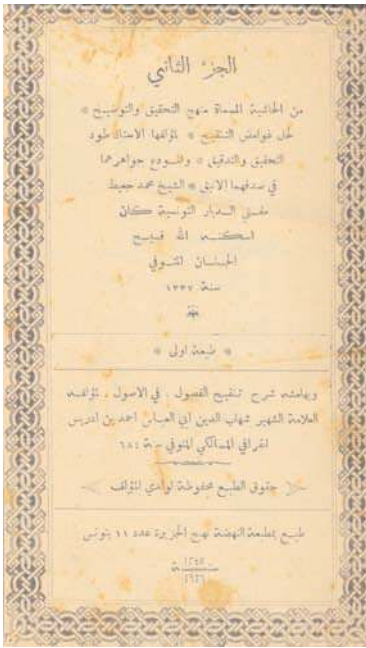 الجزء الثاني
من الحاشية المسماة منهج التحقيق والتوضيح *
لحل غوامض التنقيح * لمؤلفها الاستاذ طود
التحقيق والتدقيق * والمودع جواهرهما
في صدفهما الانيق * الشيخ محمد جعيط
مفتي الديار التونسية كان
اسكنه الله فسيح
الجنان المتوفي
سنة ١٣٣٧
* طبعة اولى *
وبهامشه شرح تنقيح الفصول ، في الاصول ، لمؤلفه
العلامة الشهير شهاب الدين ابي العباس احمد بن ادريس
القرافي المالكي المتوفي سنة ٦٨٤
حقوق الطبع محفوظة لوالدي المؤلف
طبع بمطبعة النهضة نهج الجزيرة عدد ١١ بتونس
سنة
١٩٢٦